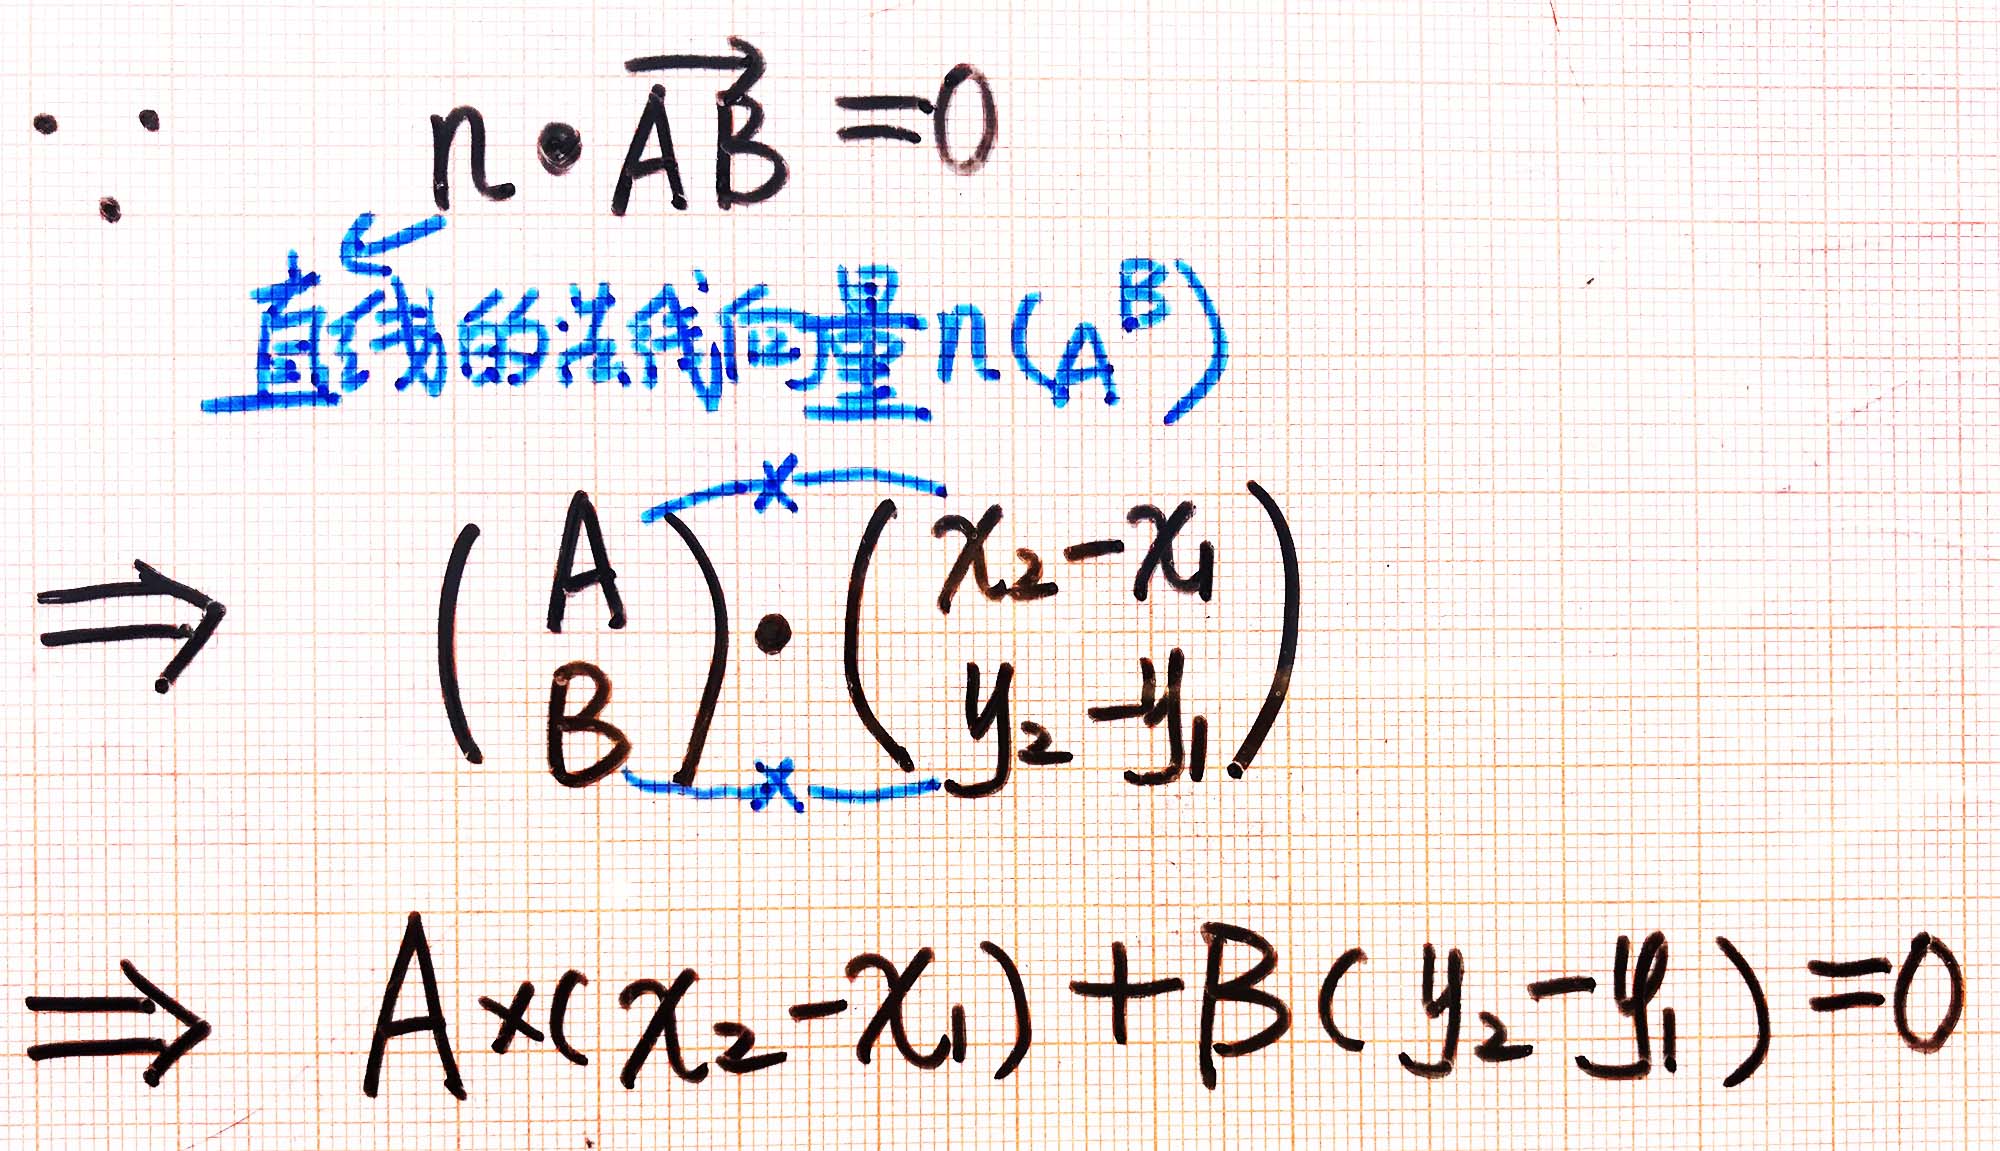 ∵ n·AB⃗=0
直线的法线向量n(A B)
⇒ (A B)·(x₂-x₁ y₂-y₁)
⇒ A×(x₂-x₁)+B(y₂-y₁)=0